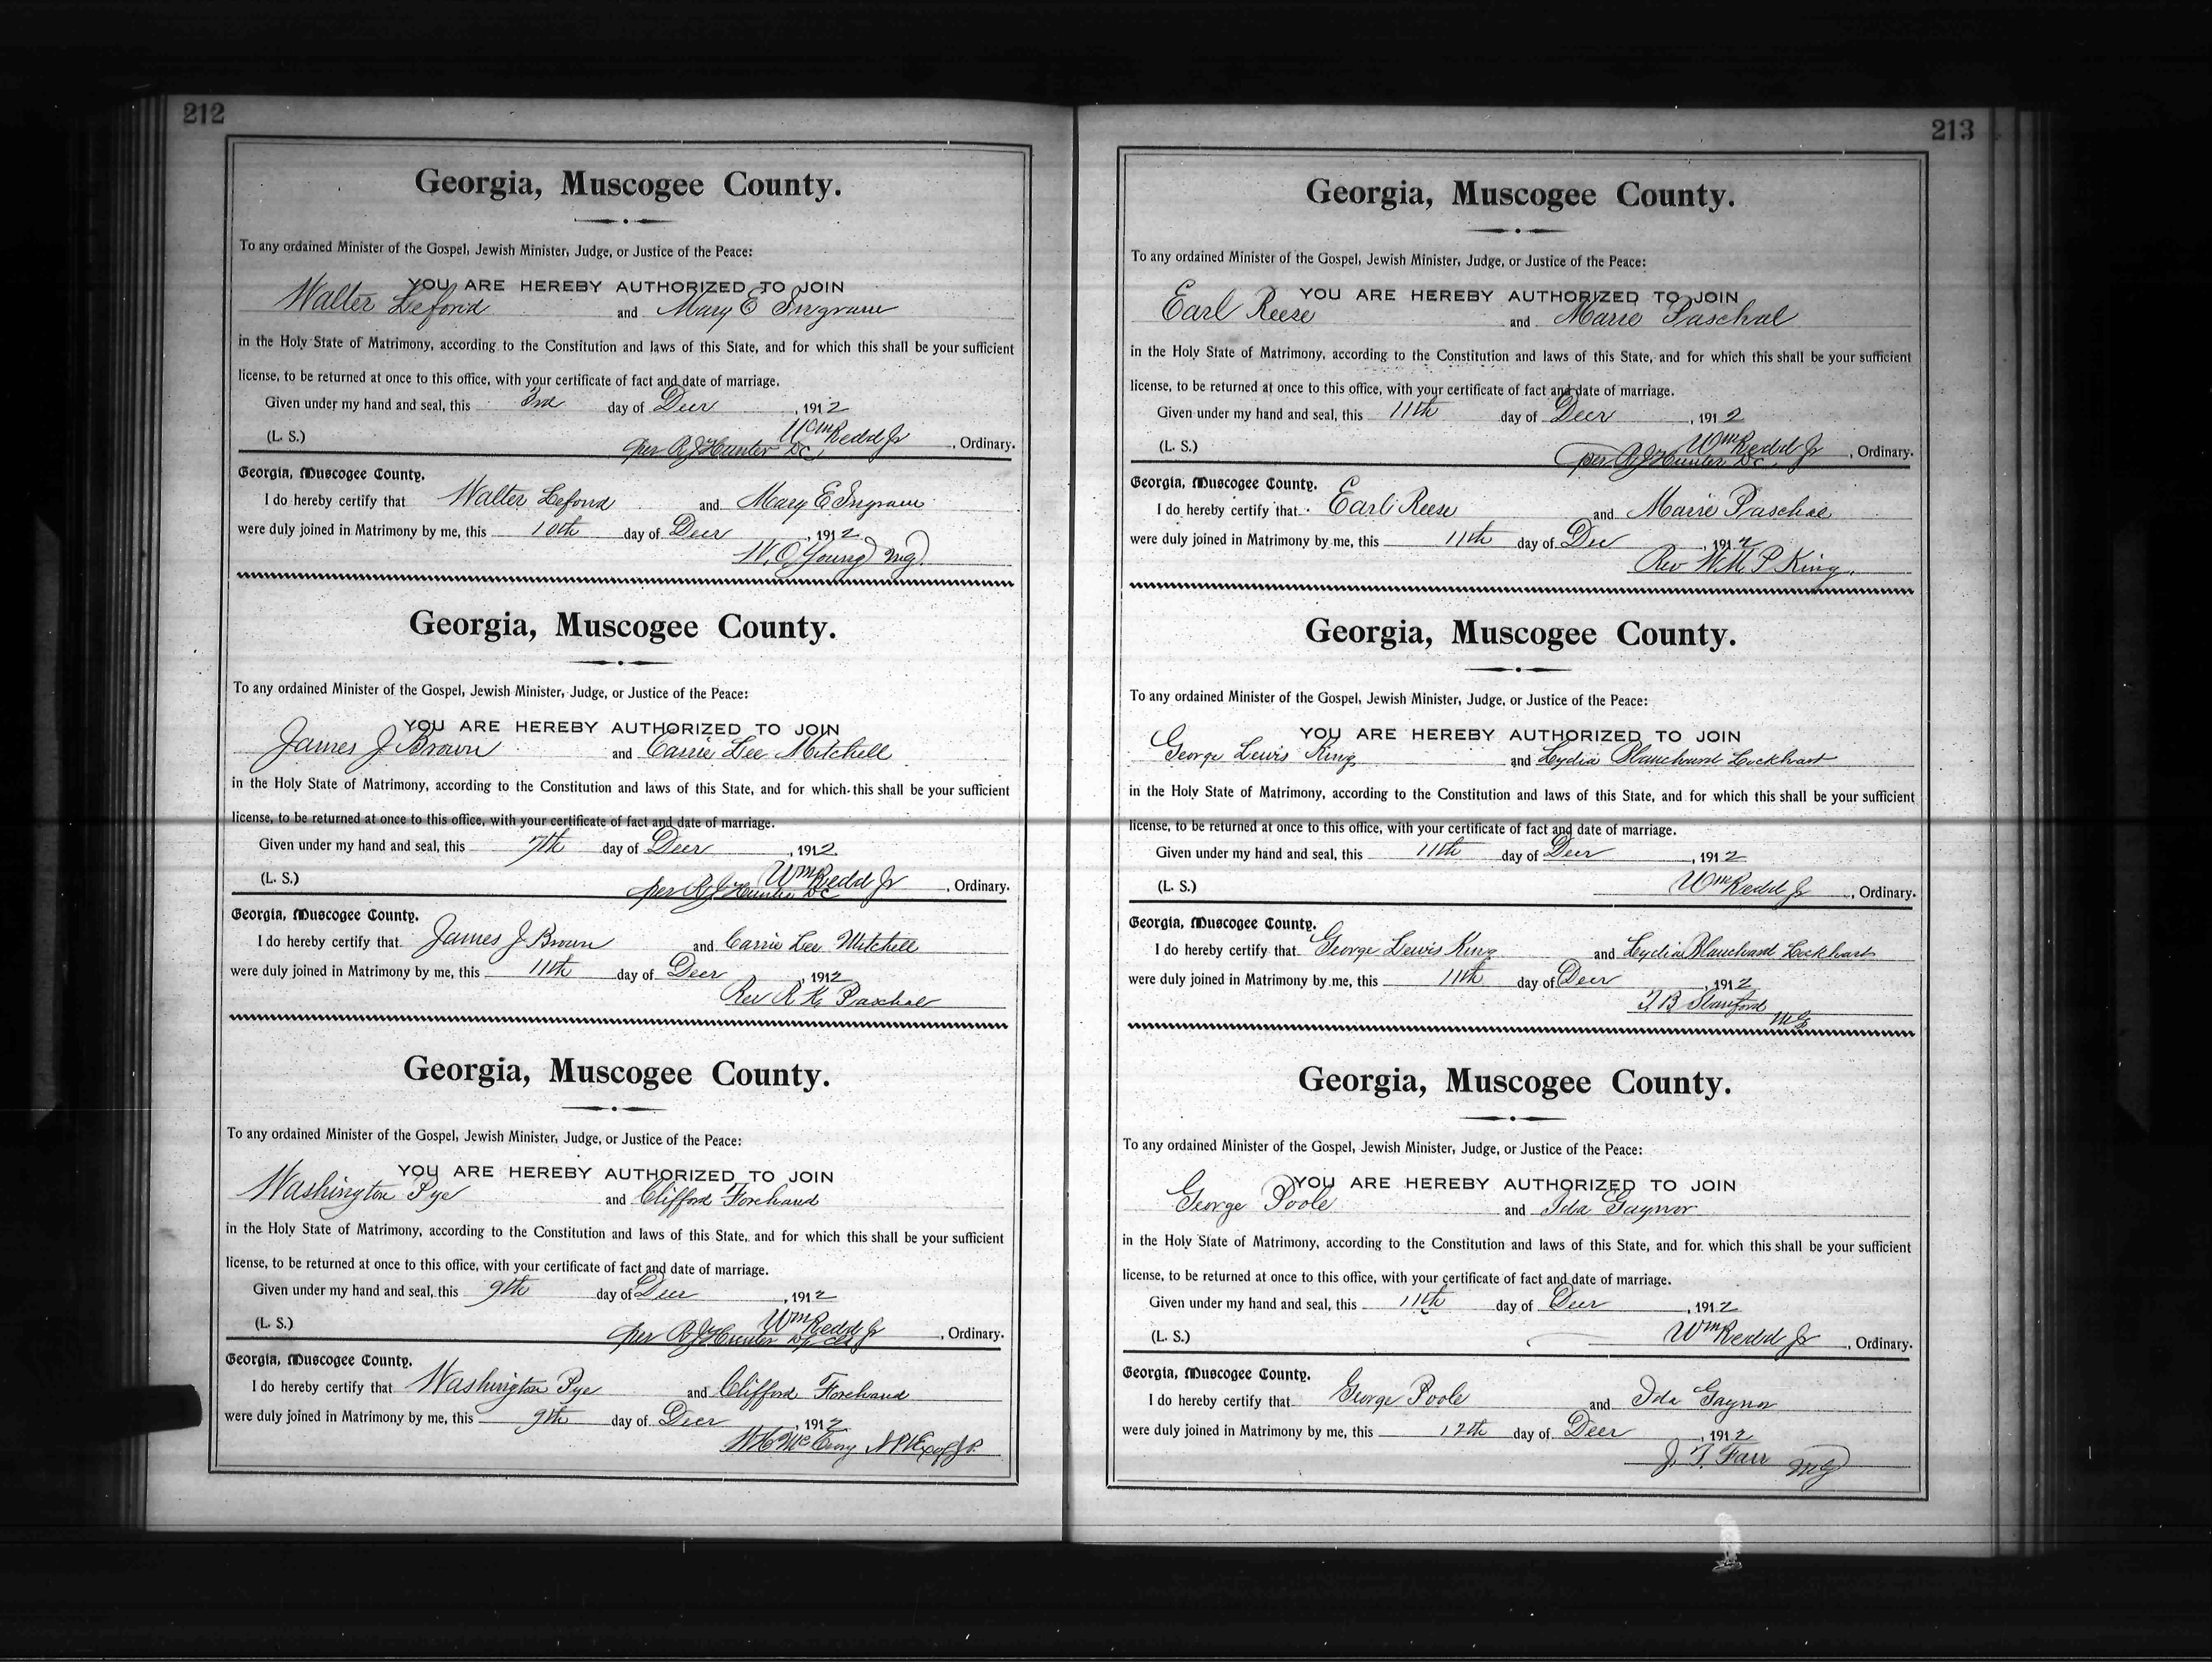 212
Georgia, Muscogee County.
To any ordained Minister of the Gospel, Jewish Minister, Judge, or Justice of the Peace:
YOU ARE HEREBY AUTHORIZED TO JOIN
Walter Leford and Mary E Ingram
in the Holy State of Matrimony, according to the Constitution and laws of this State, and for which this shall be your sufficient
license, to be returned at once to this office, with your certificate of fact and date of marriage.
Given under my hand and seal, this 3rd day of Decr, 1912
Wm Redd Jr
(L. S.) per R J Hunter DC, Ordinary.
Georgia, Muscogee County.
I do hereby certify that Walter Leford and Mary E Ingram
were duly joined in Matrimony by me, this 10th day of Decr, 1912
W. O. Young MG.
Georgia, Muscogee County.
To any ordained Minister of the Gospel, Jewish Minister, Judge, or Justice of the Peace:
YOU ARE HEREBY AUTHORIZED TO JOIN
James J Brown and Carrie Lee Mitchell
in the Holy State of Matrimony, according to the Constitution and laws of this State, and for which this shall be your sufficient
license, to be returned at once to this office, with your certificate of fact and date of marriage.
Given under my hand and seal, this 7th day of Decr, 1912
Wm Redd Jr
(L. S.) per R J Hunter DC, Ordinary.
Georgia, Muscogee County.
I do hereby certify that James J Brown and Carrie Lee Mitchell
were duly joined in Matrimony by me, this 11th day of Decr, 1912
Rev R K Paschal
Georgia, Muscogee County.
To any ordained Minister of the Gospel, Jewish Minister, Judge, or Justice of the Peace:
YOU ARE HEREBY AUTHORIZED TO JOIN
Washington Pye and Clifford Forehand
in the Holy State of Matrimony, according to the Constitution and laws of this State, and for which this shall be your sufficient
license, to be returned at once to this office, with your certificate of fact and date of marriage.
Given under my hand and seal, this 9th day of Decr, 1912
Wm Redd Jr
(L. S.) per R J Hunter, Ordinary.
Georgia, Muscogee County.
I do hereby certify that Washington Pye and Clifford Forehand
were duly joined in Matrimony by me, this 9th day of Decr, 1912
NP & Exoff J.P.
213
Georgia, Muscogee County.
To any ordained Minister of the Gospel, Jewish Minister, Judge, or Justice of the Peace:
YOU ARE HEREBY AUTHORIZED TO JOIN
Earl Reese and Marie Paschal
in the Holy State of Matrimony, according to the Constitution and laws of this State, and for which this shall be your sufficient
license, to be returned at once to this office, with your certificate of fact and date of marriage.
Given under my hand and seal, this 11th day of Decr, 1912
Wm Redd Jr
(L. S.) per R J Hunter DC, Ordinary.
Georgia, Muscogee County.
I do hereby certify that Earl Reese and Marie Paschal
were duly joined in Matrimony by me, this 11th day of Dec, 1912
Rev W M P King.
Georgia, Muscogee County.
To any ordained Minister of the Gospel, Jewish Minister, Judge, or Justice of the Peace:
YOU ARE HEREBY AUTHORIZED TO JOIN
George Lewis King and Lydia Blanchard Lockhart
in the Holy State of Matrimony, according to the Constitution and laws of this State, and for which this shall be your sufficient
license, to be returned at once to this office, with your certificate of fact and date of marriage.
Given under my hand and seal, this 11th day of Decr, 1912
(L. S.) Wm Redd Jr, Ordinary.
Georgia, Muscogee County.
I do hereby certify that George Lewis King and Lydia Blanchard Lockhart
were duly joined in Matrimony by me, this 11th day of Decr, 1912
T. B. Stanford
MG
Georgia, Muscogee County.
To any ordained Minister of the Gospel, Jewish Minister, Judge, or Justice of the Peace:
YOU ARE HEREBY AUTHORIZED TO JOIN
George Poole and Ida Gaynor
in the Holy State of Matrimony, according to the Constitution and laws of this State, and for which this shall be your sufficient
license, to be returned at once to this office, with your certificate of fact and date of marriage.
Given under my hand and seal, this 11th day of Decr, 1912
(L. S.) Wm Redd Jr, Ordinary.
Georgia, Muscogee County.
I do hereby certify that George Poole and Ida Gaynor
were duly joined in Matrimony by me, this 12th day of Decr, 1912
J. T. Farr MG